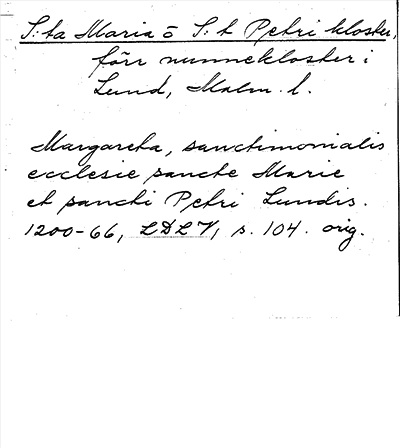 S:ta Maria o S:t Petri kloster,
förr nunnekloster i
Lund, Malm. l.
Margareta, sanctimonialis
ecclesie sancte Marie
et sancti Petri Lundis.
1200-66, LDLV, s. 104. orig.